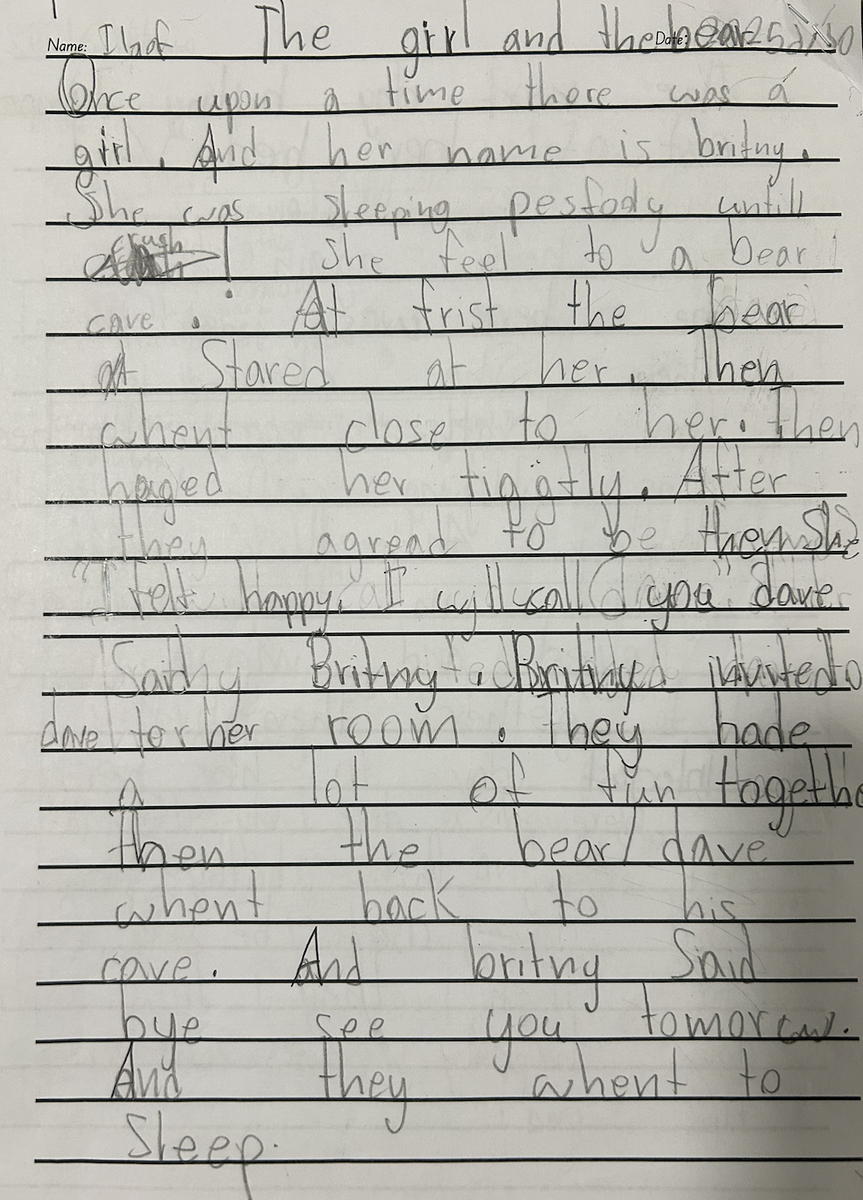 Name: Ilaf The girl and the bear Date:
Once upon a time there was a
girl. And her name is britny.
She was sleeping pesfody untill
crush! she feel to a bear
cave. At frist the bear
Stared at her. Then
whent close to her. Then
huged her tiggtly. After
they agread to be them She
"I felt happy. I will call you" dave
Said Britny. Britiny invited
dave to her room. They hade
a lot of fun togethe
then the bear/dave
whent back to his
cave. And britny Said
bye see you tomorow.
And they whent to
Sleep.